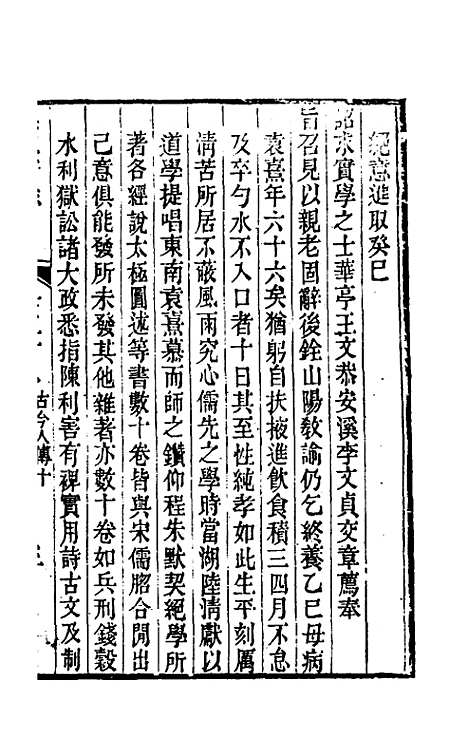 絕意進取癸巳
詔求實學之士華亭王文恭安溪李文貞交章薦奉
旨召見以親老固辭後銓山陽敎諭仍乞終養乙巳母病
袁熹年六十六矣猶躬自扶掖進飮食積三四月不怠
及卒勺水不入口者十日其至性純孝如此生平刻厲
淸苦所居不蔽風雨究心儒先之學時當湖陸淸獻以
道學提唱東南袁熹慕而師之鑽仰程朱默契絕學所
著各經說太極圖述等書數十卷皆與宋儒脗合閒出
己意俱能發所未發其他雜著亦數十卷如兵刑錢穀
水利獄訟諸大政悉指陳利害有裨實用詩古文及制
古今人傳十